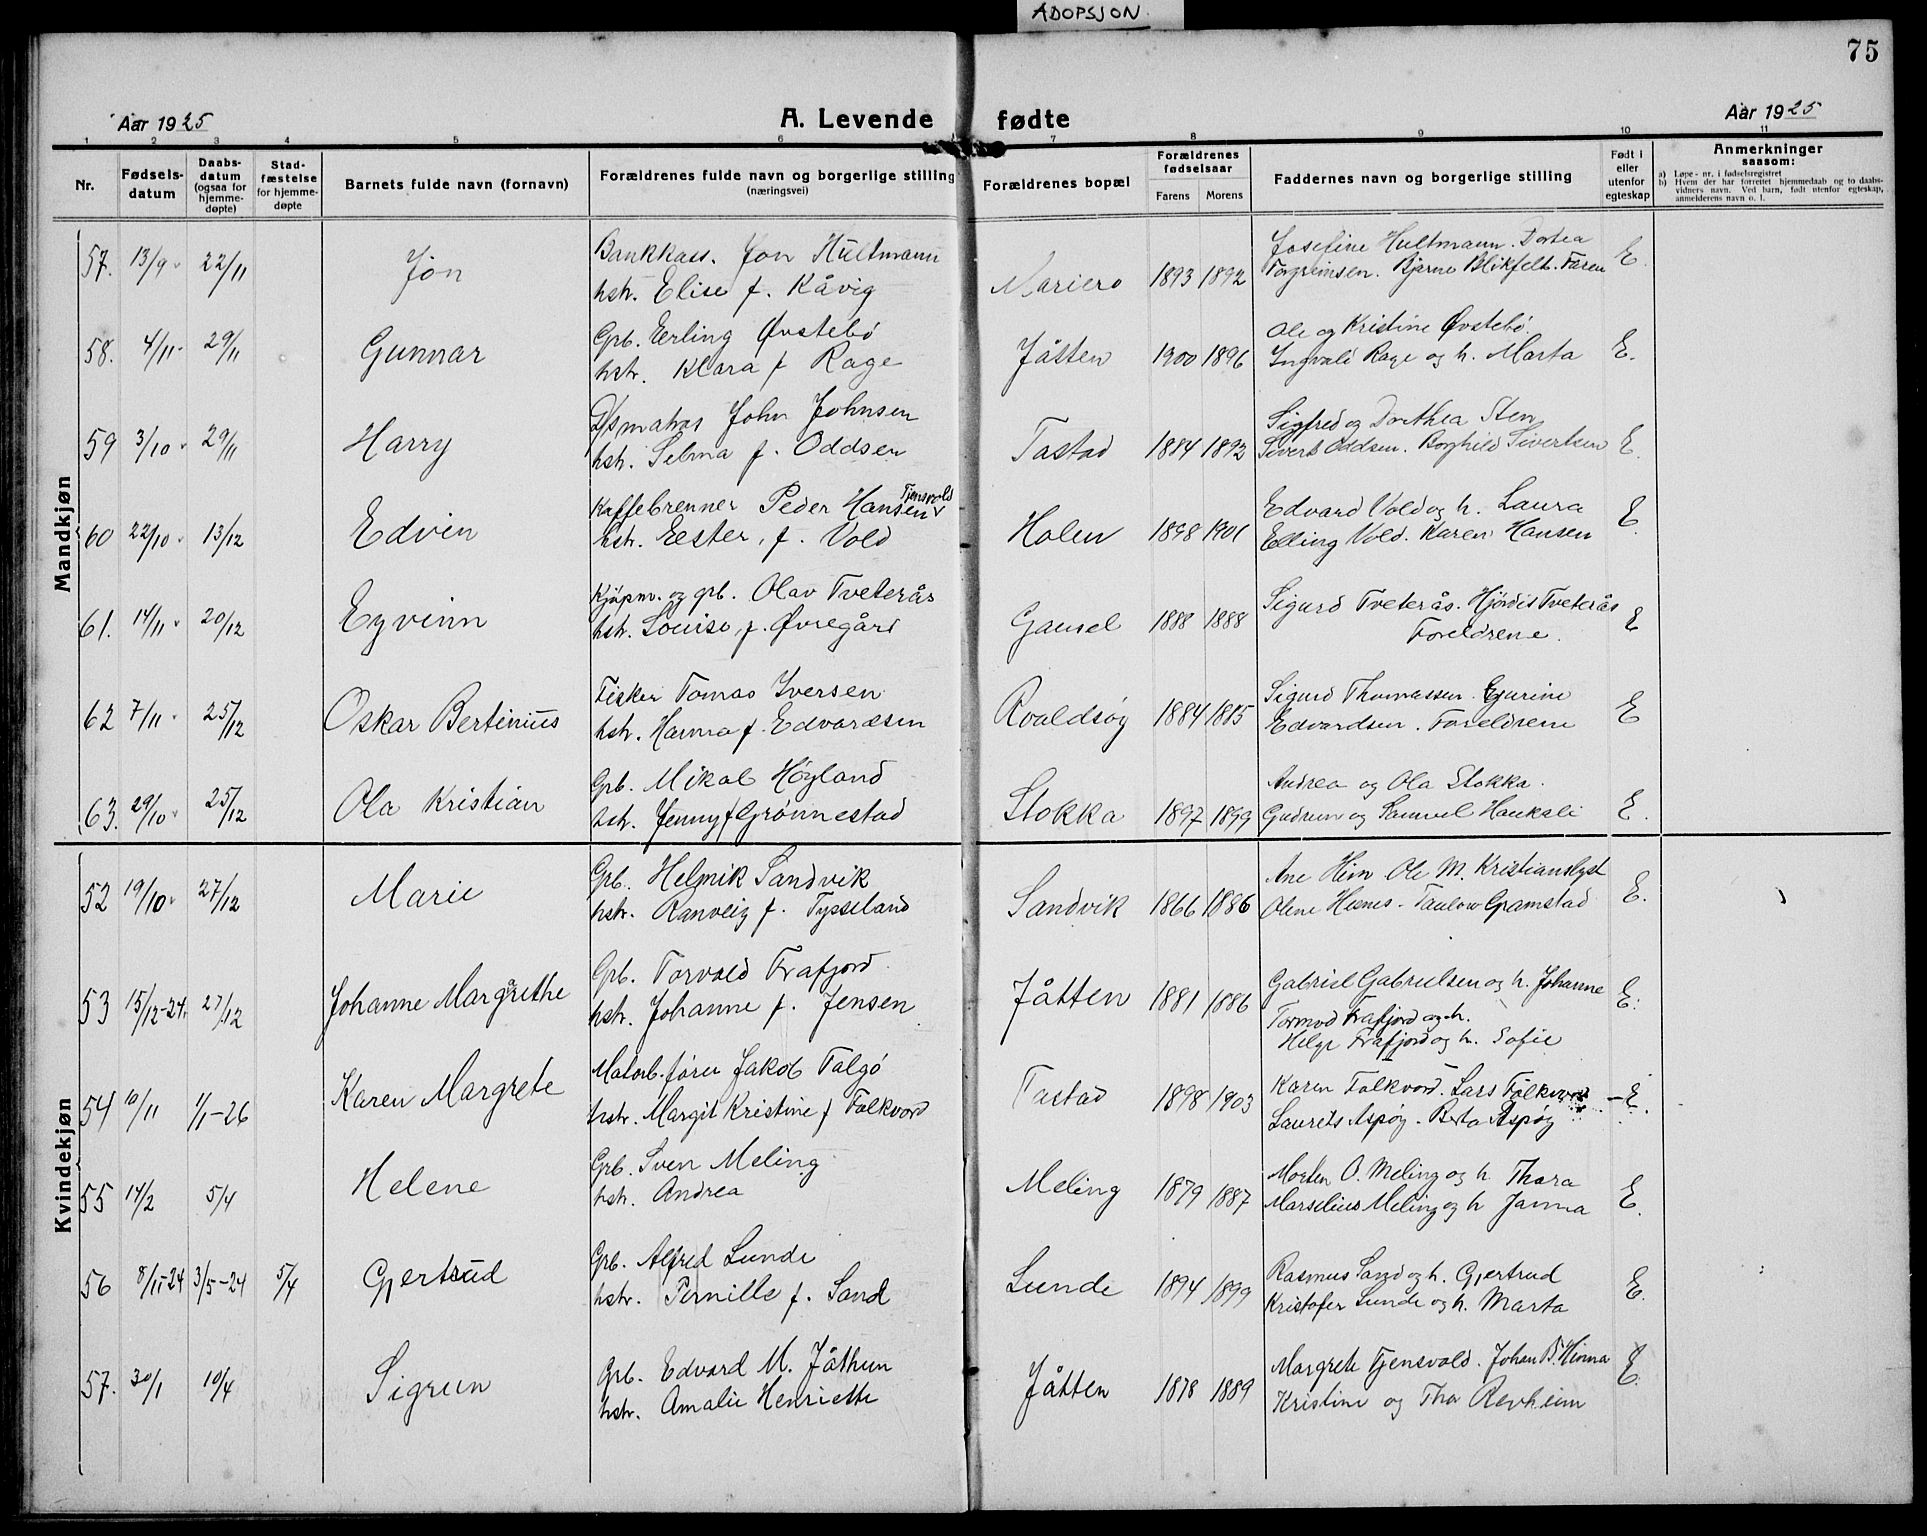 ADOPSJON.
75
Aar 1925 A. Levende fødte Aar 1925
1 2 3 4 5 6 7 8 9 10 11
Nr. Fødsels-datum Daabs-datum (ogsaa for hjemme-døpte) Stad-fæstelse for hjemme-døpte Barnets fulde navn (fornavn) Forældrenes fulde navn og borgerlige stilling (næringsvei) Forældrenes bopæl Forældrenes fødselsaar Farens Morens Faddernes navn og borgerlige stilling Født i eller utenfor egteskap Anmerkninger saasom:
a) Løpe-nr. i fødselsregistret
b) Hvem der har forrettet hjemmedaab og to daabs-vidners navn. Ved barn, født utenfor egteskap, anmelderens navn o. l.
Mandkjøn
57. 13/9 22/11 Jon Bankkass. Jon Hultmann Mariero 1893 1892 Josefine Hultmann. Dortea E.
hstr. Elise f. Kåvig Torgrimsen. Bjarne Blikfelt. Faren
58. 4/11 29/11 Gunnar Grb. Erling Øvstebö Jåtten 1900 1896 Ole og Kristine Øvstebö. E.
hstr. Klara f Rage Ingvald Rage og h. Marta
59 3/10 29/11 Harry D/S matros John Johnsen Tastad 1884 1892 Sigfred og Dorthea Sten E.
hstr. Selma f. Oddsen Sivert Oddsen. Borghild Sivertsen
60 22/10 13/12 Edvin Kaffebrenner Peder Hansen Tjensvold Holen 1898 1901 Edvard Vold og h. Laura E.
hstr. Eester, f. Vold Elling Vold. Karen Hansen
61. 14/11 20/12 Eyvinn Kjöpm. og grb. Olav Tveterås Gausel 1888 1888 Sigurd Tveterås. Hjördis Tveterås E
hstr. Louise, f. Øvregård Foreldrene.
62 7/11 25/12 Oskar Bertinius Fisker Tomas Iversen Roaldsøy 1884 1885 Sigurd Thomassen. Gjurine E
hstr. Hanna f. Edvardsen Edvardsen. Foreldrene
63. 29/10 25/12 Ola Kristian Grb. Mikal Høyland Stokka 1897 1899 Andrea og Ola Stokka. E.
hstr. Jenny f Grönnestad Gudrun og Samuel Haukali
Kvindekjøn
52 19/10 27/12 Marie Grb. Helmik Sandvik Sandvik 1866 1886 Ane Ole M. Kristianslyst E.
hstr. Ranveig f. Tysseland Olene Gramstad
53 15/12-24. 27/12 Johanne Margrethe Grb. Torvald Frafjord Jåtten 1881 1886 Gabriel Gabrielsen og h. Johanne E.
hstr. Johanne f. Jensen Tormod Frafjord og h.
Helge Frafjord og h. Sofie
54 10/11 1/1-26 Karen Margrete Motorb.fører Jakob Talgö Tastad 1898 1903 Karen Folkvord. Lars Folkvord E.
hstr. Margit Kristine f Folkvord Laurits Aspøy. Berta Aspøy
55 14/2 5/4 Helene Grb. Sven Meling Meling 1879 1887 Morten O. Meling og h Thora E.
hstr. Andrea Marselius Meling og h Janna
56 8/1-24 3/5-24 5/4 Gjertrud Grb. Alfred Lunde Lunde 1894 1899 Rasmus Sand og h. Gjertrud E.
hstr. Pernille f. Sand Kristofer Lunde og h. Marta
57. 30/1 10/4 Sigrun Grb. Edvard M. Jåthun Jåtten 1878 1889 Margrete Tjensvold. Johan B. Hinna E.
hstr. Amalie Henriette Kristine og Thor Revheim